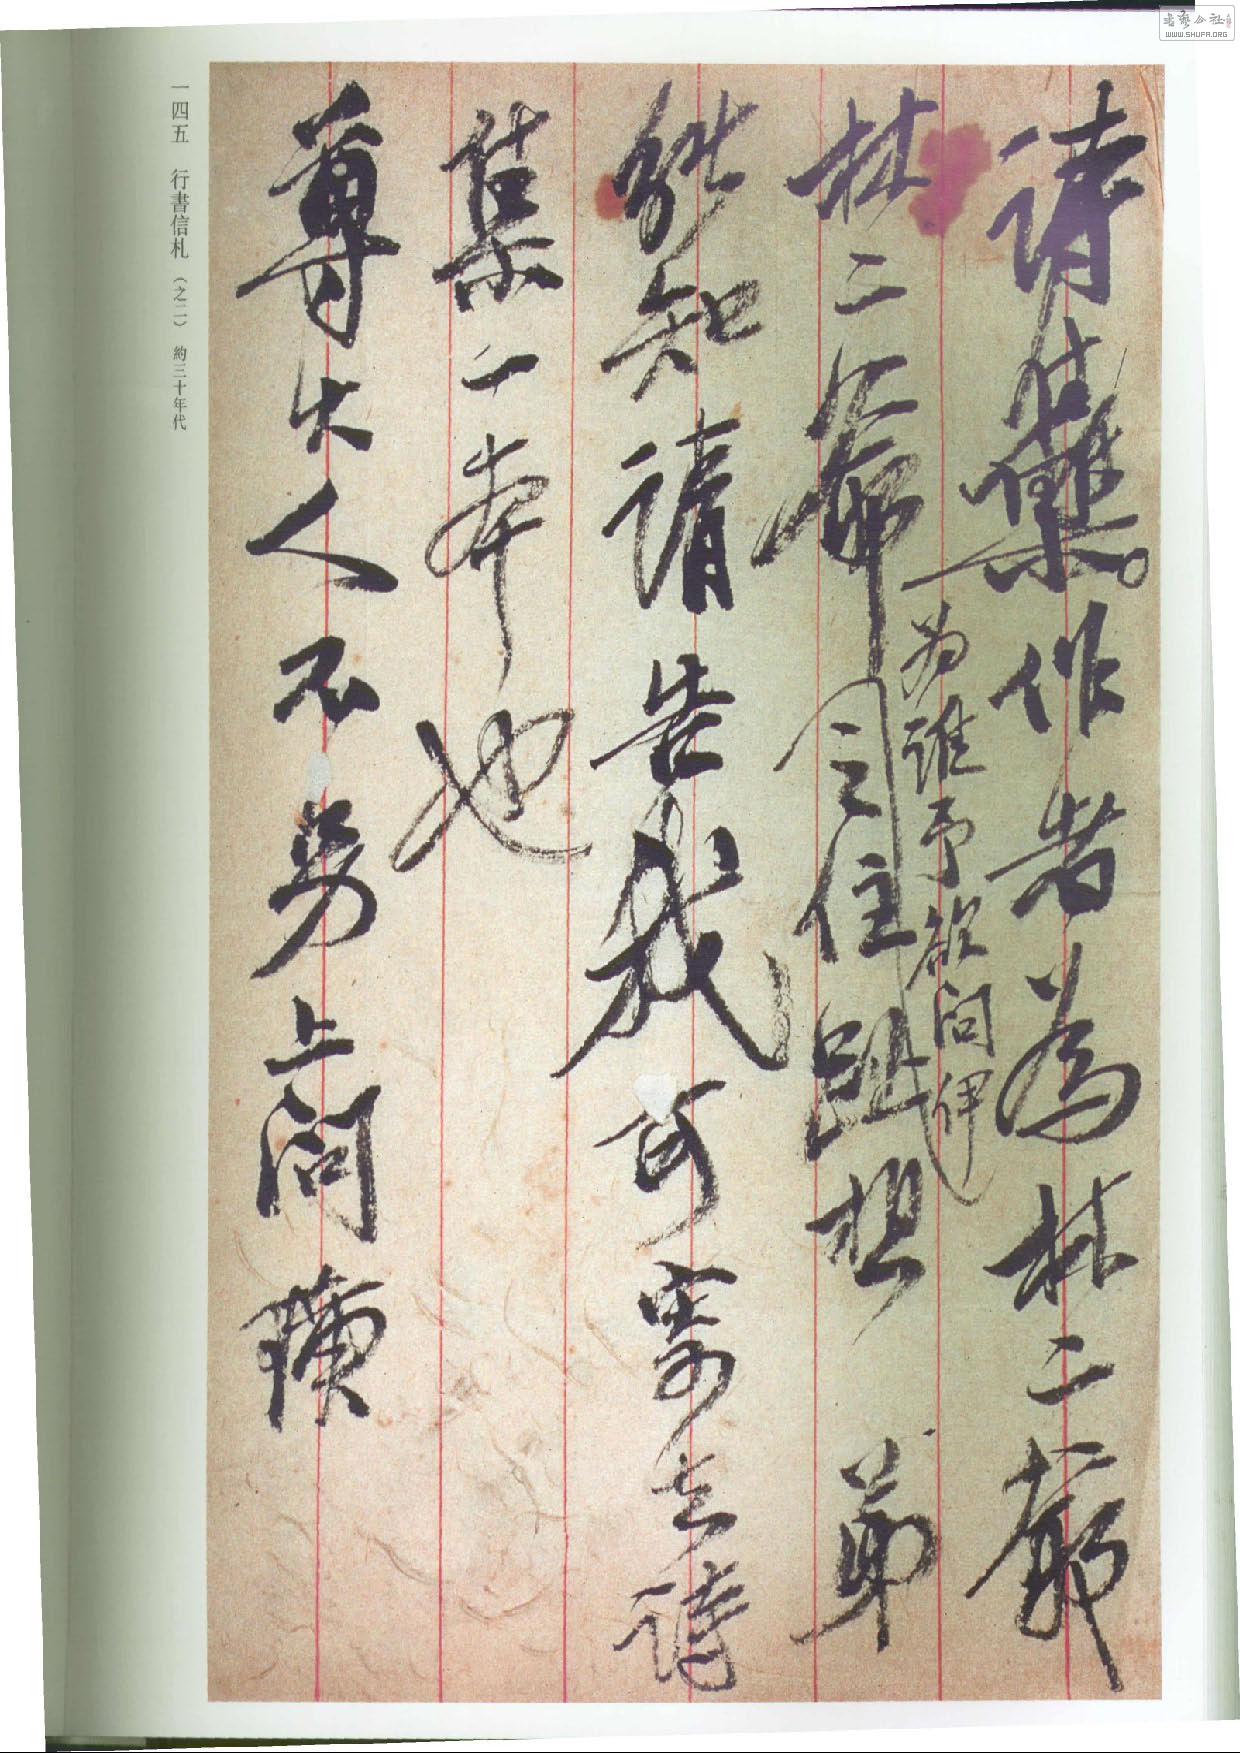 詩集作者為林二爺
为誰予欲问伊
林二爺之住趾想 弟
能知請告我可寄去詩
集一本也
尊大人不另上问 璜
一四五 行書信札（之二） 約三十年代
书艺公社
WWW.SHUFA.ORG